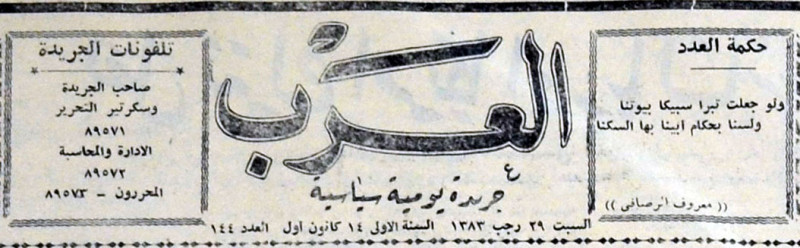 حكمة العدد
ولو جعلت تبرا سبيكا بيوتنا
ولسنا بحكام ابينا بها السكنا
(( معروف الرصافي ))
العرب
جريدة يومية سياسية
السبت ٢٩ رجب ١٣٨٣ السنة الاولى ١٤ كانون اول العدد ١٤٤
تلفونات الجريدة
صاحب الجريدة
وسكرتير التحرير
٨٩٥٧١
الادارة والمحاسبة
٨٩٥٧٢
المحررون - ٨٩٥٧٣